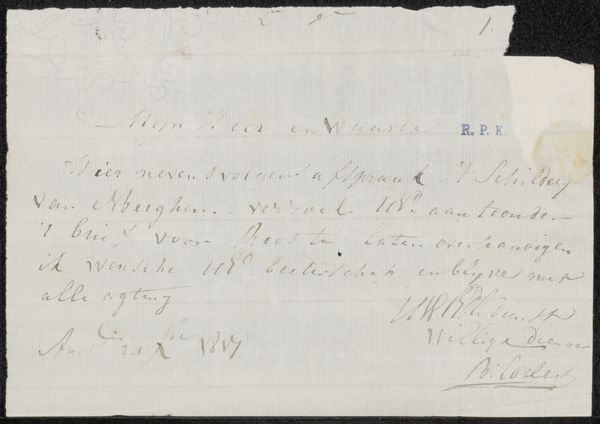 1.
Mijn Heer en waarde
R. P. K.
Hier nevens volgens afspraak 't Schildery
van Berghem. verzoek UEd aan toonder
't brief voor Boot te laten overhandigen
ik wensche UEd beeterschap en blyve met
alle agting
UWEd dienst
Willige Dienaar
B: Coclers
Amst 21 1817